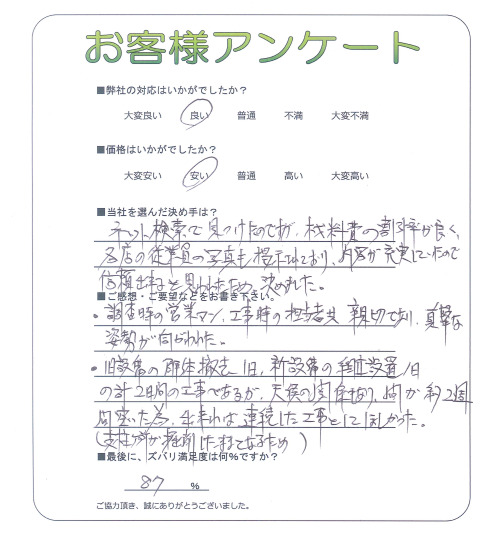 お客様アンケート
■弊社の対応はいかがでしたか？
大変良い 良い 普通 不満 大変不満
■価格はいかがでしたか？
大変安い 安い 普通 高い 大変高い
■当社を選んだ決め手は？
ネット検索で見つけたのですが、材料費の割引率が良く、
各店の従業員の写真も掲示されており、内容が充実していたので
信頼出来ると思われたため、決めました。
■ご感想・ご要望などをお書き下さい。
・調査時の営業マン、工事時の担当者共 親切であり、真摯な
姿勢が向がわれた。
・旧設備の解体撤去1日、新設備の組立設置1日
の計2日間の工事であるが、天候の関係もあり、間が約2週
間空いた為、出来れば連続した工事としてほしかった。
(支柱が掘削したままとなるため)
■最後に、ズバリ満足度は何％ですか？
87 %
ご協力頂き、誠にありがとうございました。